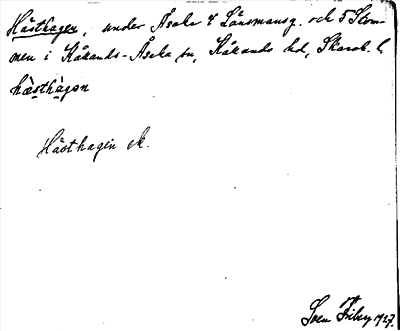 Hästhagen, under Åsaka 4 Länsmansg. och 5 Stom-
men i Kåkinds-Åsaka sn, Kåkinds hd, Skarab. l.
hàsthàgən
Hästhagen ek.
Sven Friberg 1927.